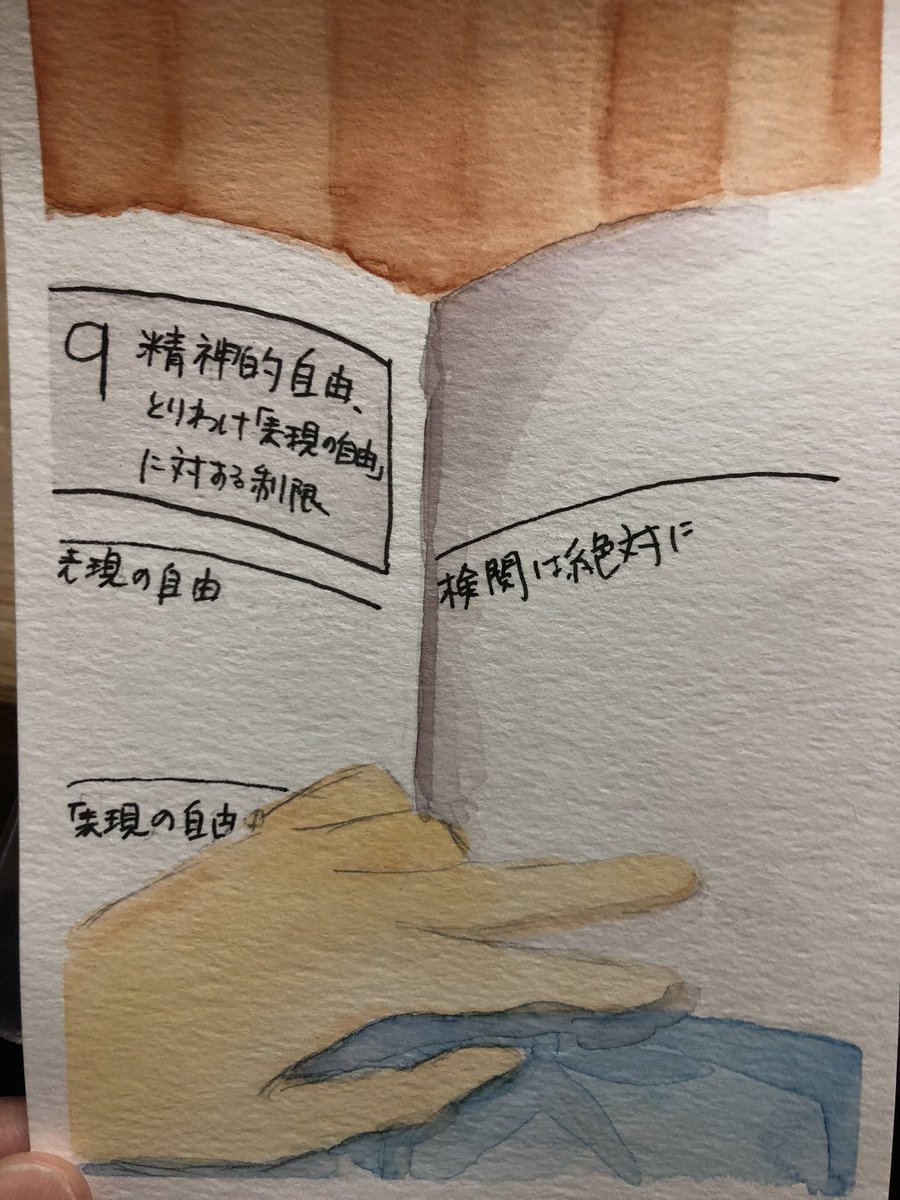 9 精神的自由、
とりわけ「表現の自由」
に対する制限
表現の自由
「表現の自由
検閲は絶対に